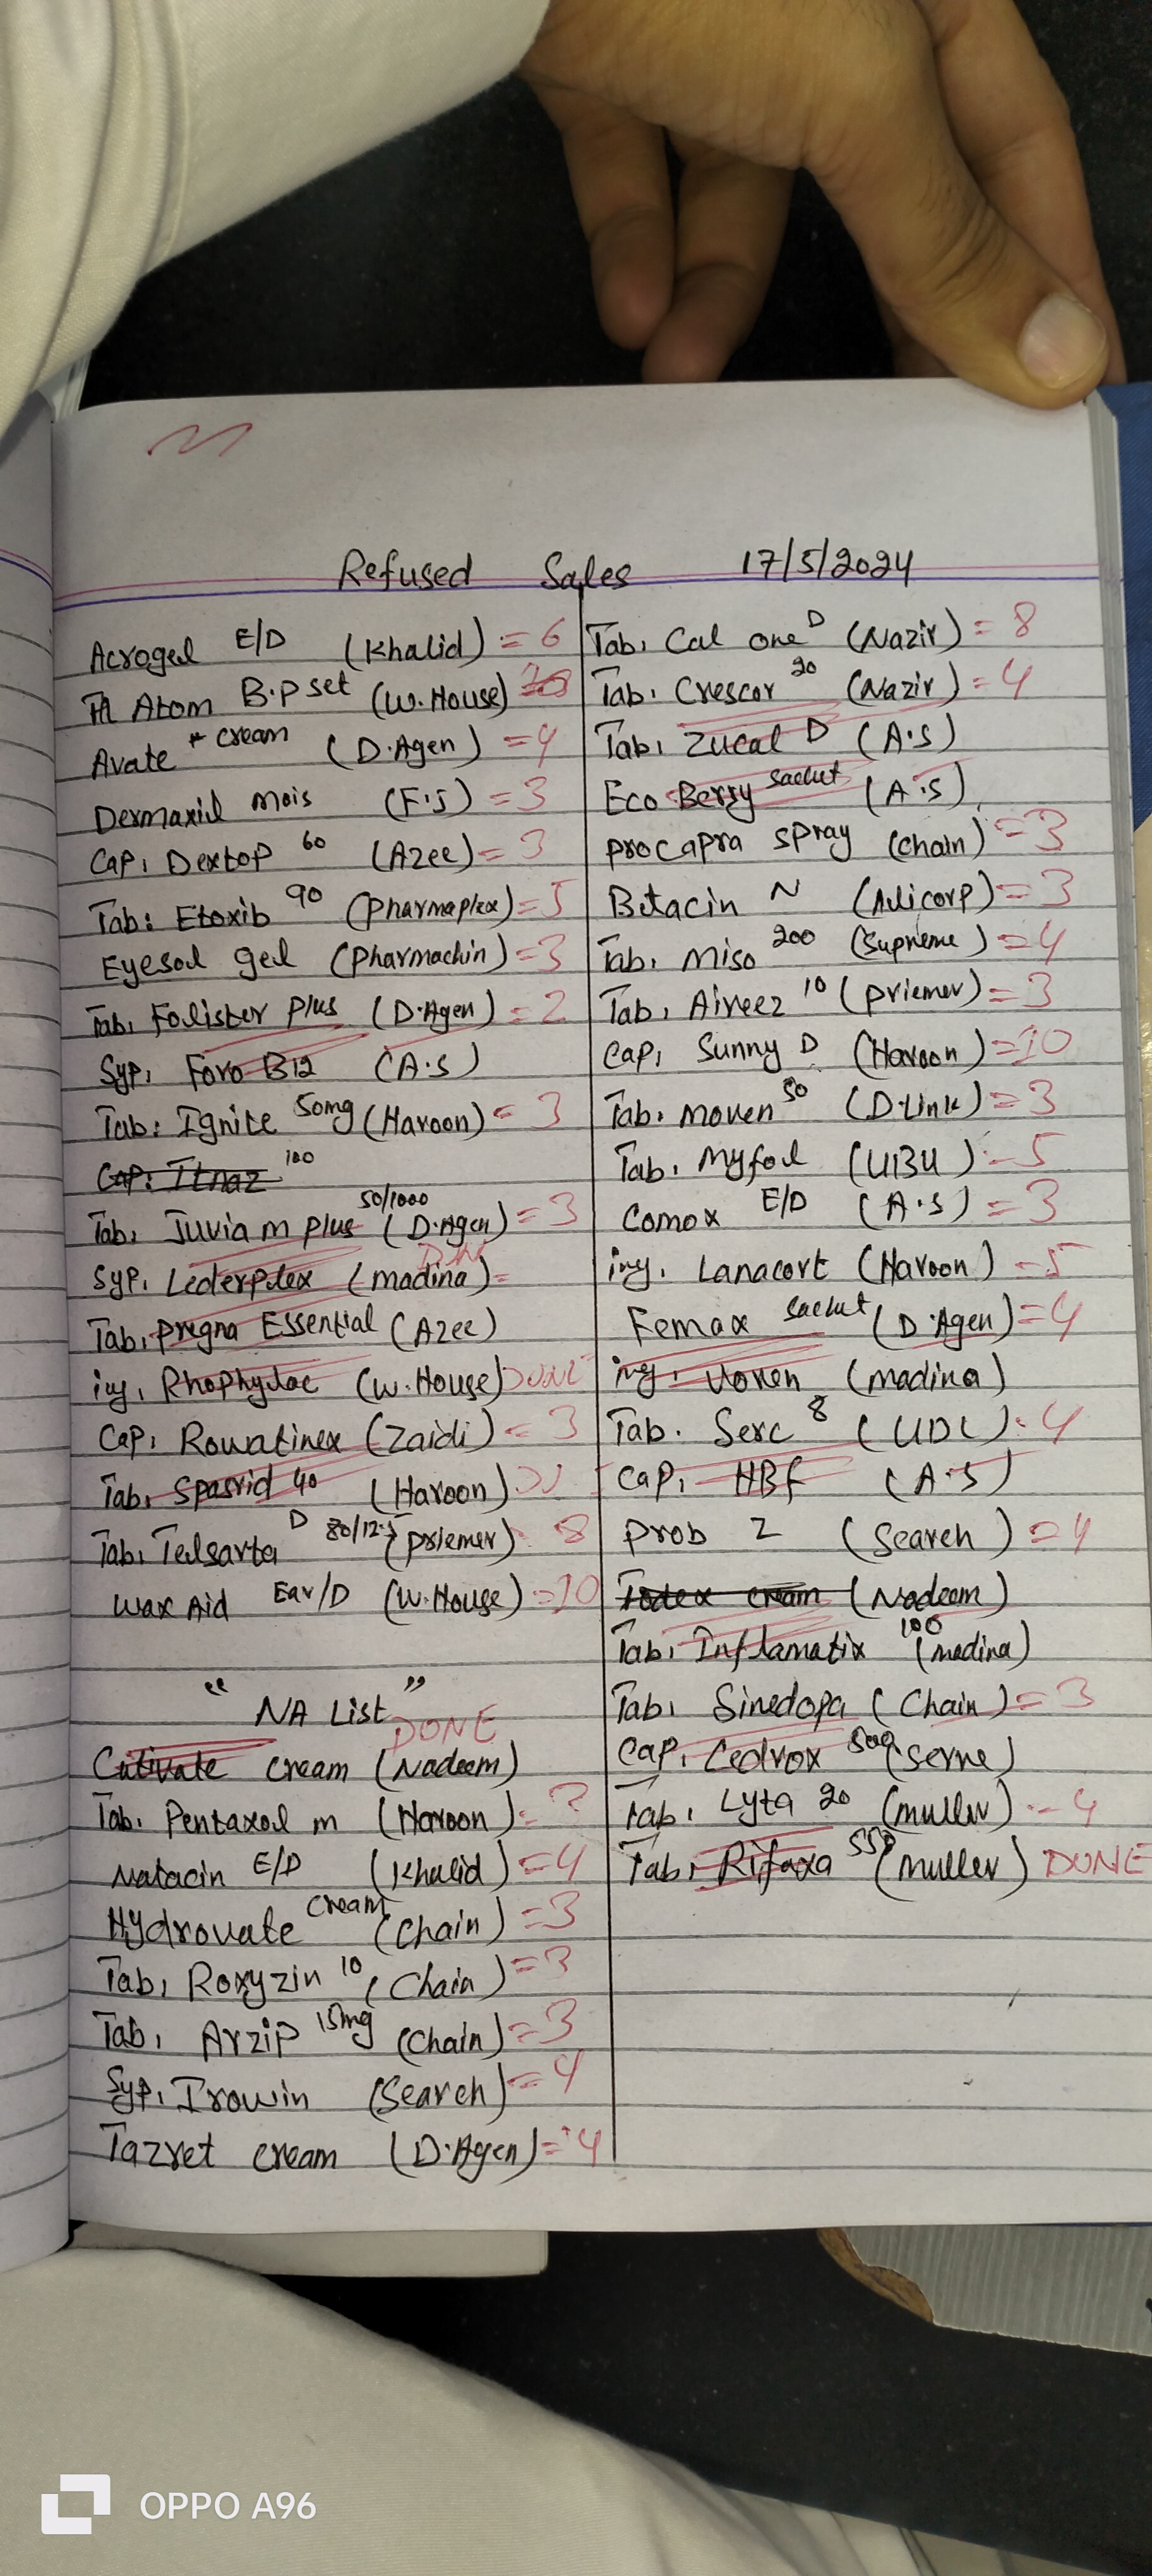 Refused Sales 17/5/2024
Acrogel E/D (Khalid) = 6
Atom B.P set (W.House)
Avate + cream (D.Agen) = 4
Dermaxil mois (F.J) = 3
Cap, Dextop 60 (Azee) = 3
Tab: Etoxib 90 (Pharmaplex) = 5
Eyesol gel (Pharmachin) = 3
Tab, Folister plus (D.Agen) = 2
Syp, Foro B12 (A.S)
Tab: Ignite 50mg (Haroon) = 3
Cap: Itnaz 100
Tab, Juvia m plus 50/1000 (D.Agen) = 3
Syp, Lederplex (madina) =
Tab, pregna Essential (Azee)
inj, Rhophylac (W.House) DONE
Cap, Rowatinex (Zaidi) = 3
Tab, Spasrid 40 (Haroon)
Tab, Telsarta D 80/12.5 (priemer) 8
Wax Aid Ear/D (W.House) = 10
"NA List"
DONE
Cutivate cream (Nadeem)
Tab. Pentaxol m (Haroon) = ?
Natacin E/D (Khalid) = 4
Hydrovate cream (Chain) = 3
Tab, Roxyzin 10 (Chain) = 3
Tab, Arzip 15mg (Chain) = 3
Syp, Irowin (Search) = 4
Tazret cream (D.Agen) = 4
Tab, Cal one D (Nazir) = 8
Tab. Crescor 20 (Nazir) = 4
Tab, Zucal D (A.S)
Eco Berry sachet (A.S)
procapra spray (chain) = 3
Betacin N (Alicorp) = 3
Tab, Miso 200 (Supreme) = 4
Tab, Aireez 10 (priemer) = 3
Cap, Sunny D (Haroon) = 10
Tab. moven 50 (D.Link) = 3
Tab. Myfol (UBU) = 5
Comox E/D (A.S) = 3
inj, Lanacort (Haroon) = 5
Femax sachet (D.Agen) = 4
inj. Voren (madina)
Tab. Serc 8 (UDL) = 4
Cap, HBF (A.S)
Prob Z (Search) = 4
Iodex cream (Nadeem)
Tab, Inflamatix 100 (madina)
Tab, Sinedopa (Chain) = 3
Cap, Cedrox 500 (Serne)
Tab, Lyta 20 (muller) = 4
Tab, Rifaxa 550 (muller) DONE
OPPO A96